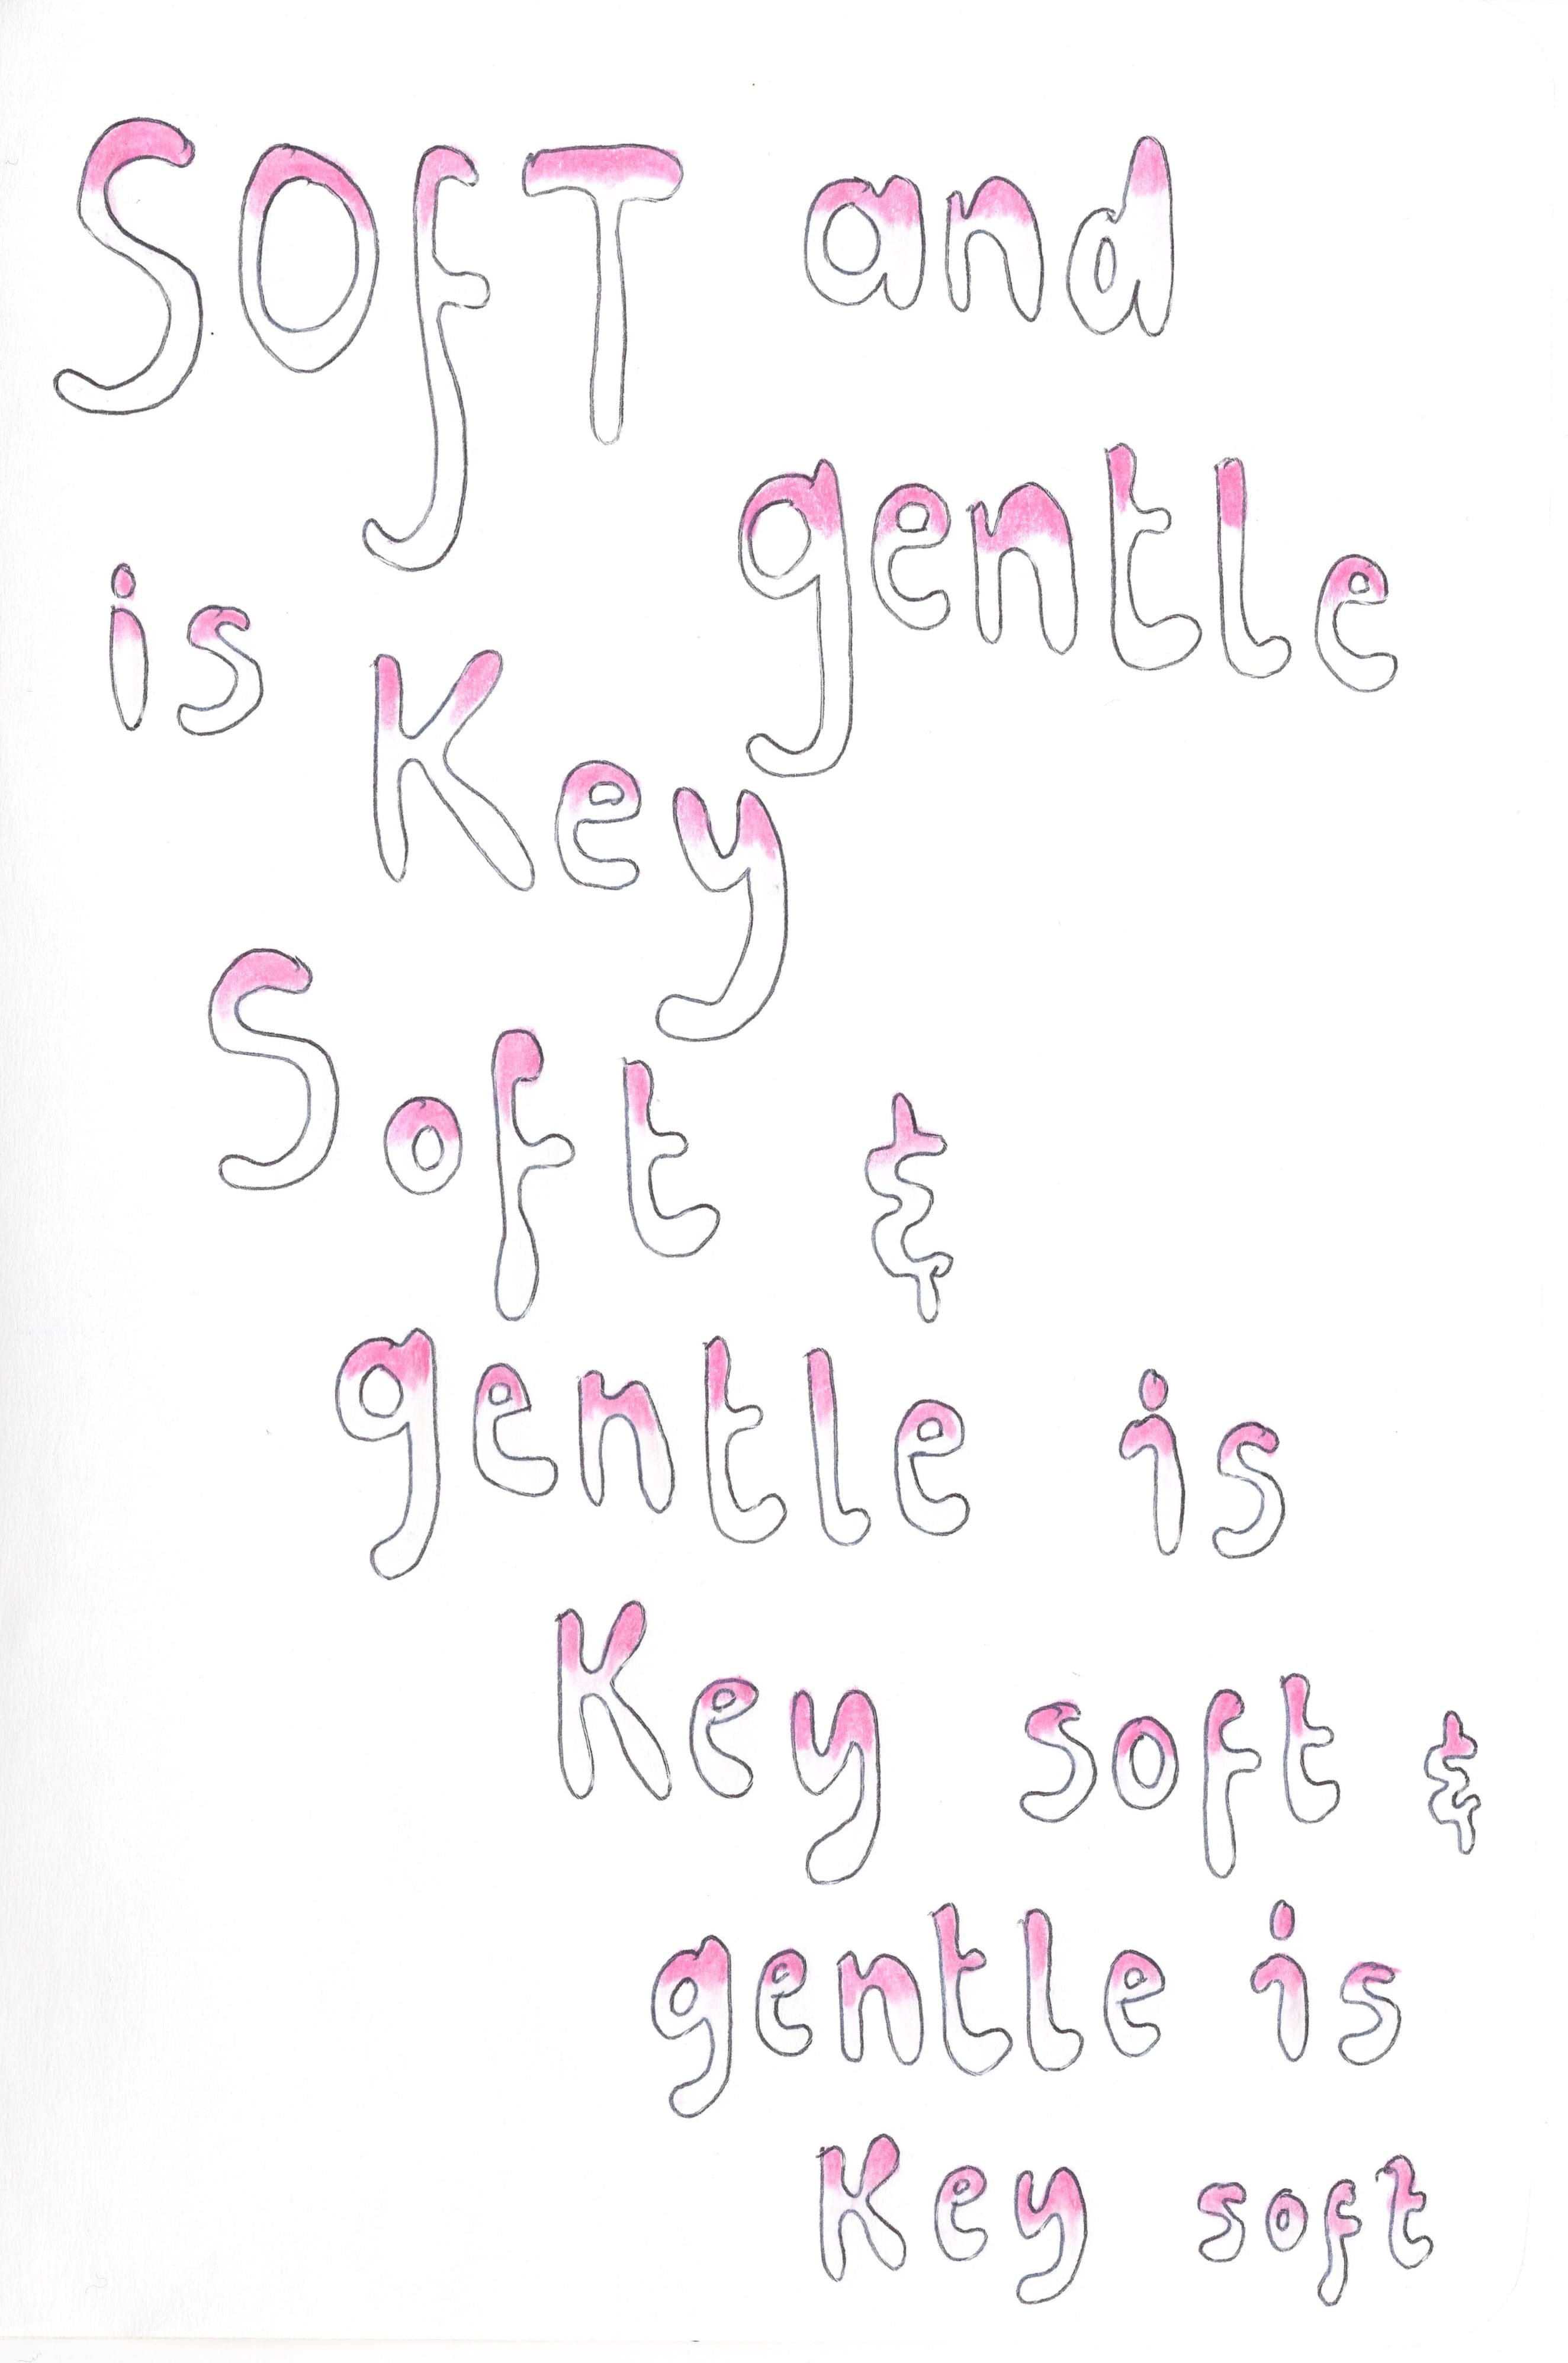 SOfT and
gentle
is Key
Soft &
gentle is
Key soft &
gentle is
Key soft